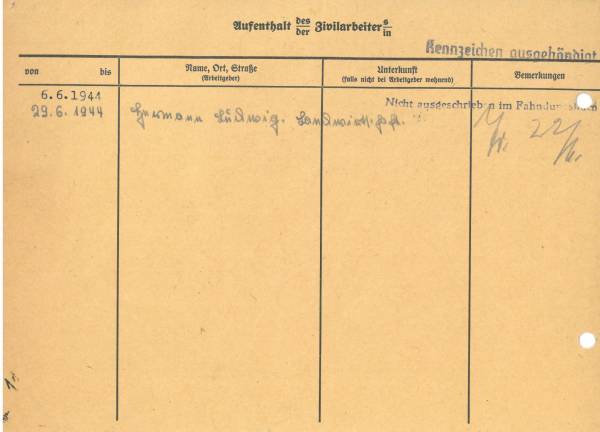 Aufenthalt des/der Zivilarbeiters/in
Kennzeichen ausgehändigt
von bis
Name, Ort, Straße
(Arbeitgeber)
Unterkunft
(falls nicht bei Arbeitgeber wohnend)
Bemerkungen
6.6.1944
Nicht ausgeschrieben im Fahndungsbuch
29.6.1944 Hermann Ludwig. Landwirtschaft.